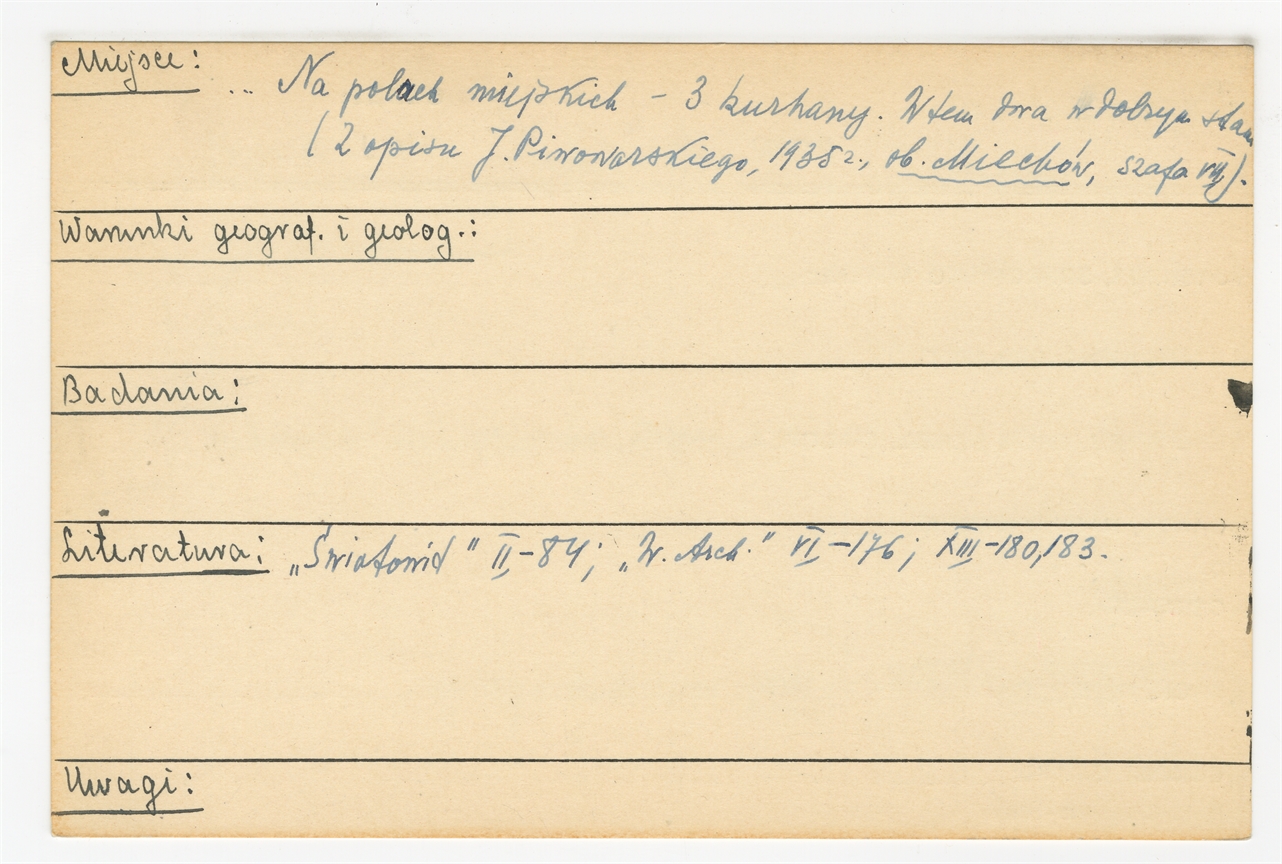 Miejsce: ... Na polach miejskich – 3 kurhany. W tem dwa w dobrym stanie
(Z opisu J. Piwowarskiego, 1935 r., ob. Miechów, szafa VII).
Warunki geograf. i geolog.:
Badania:
Literatura: „Światowid" II–84; „W. Arch." VI–176; XIII–180,183.
Uwagi: